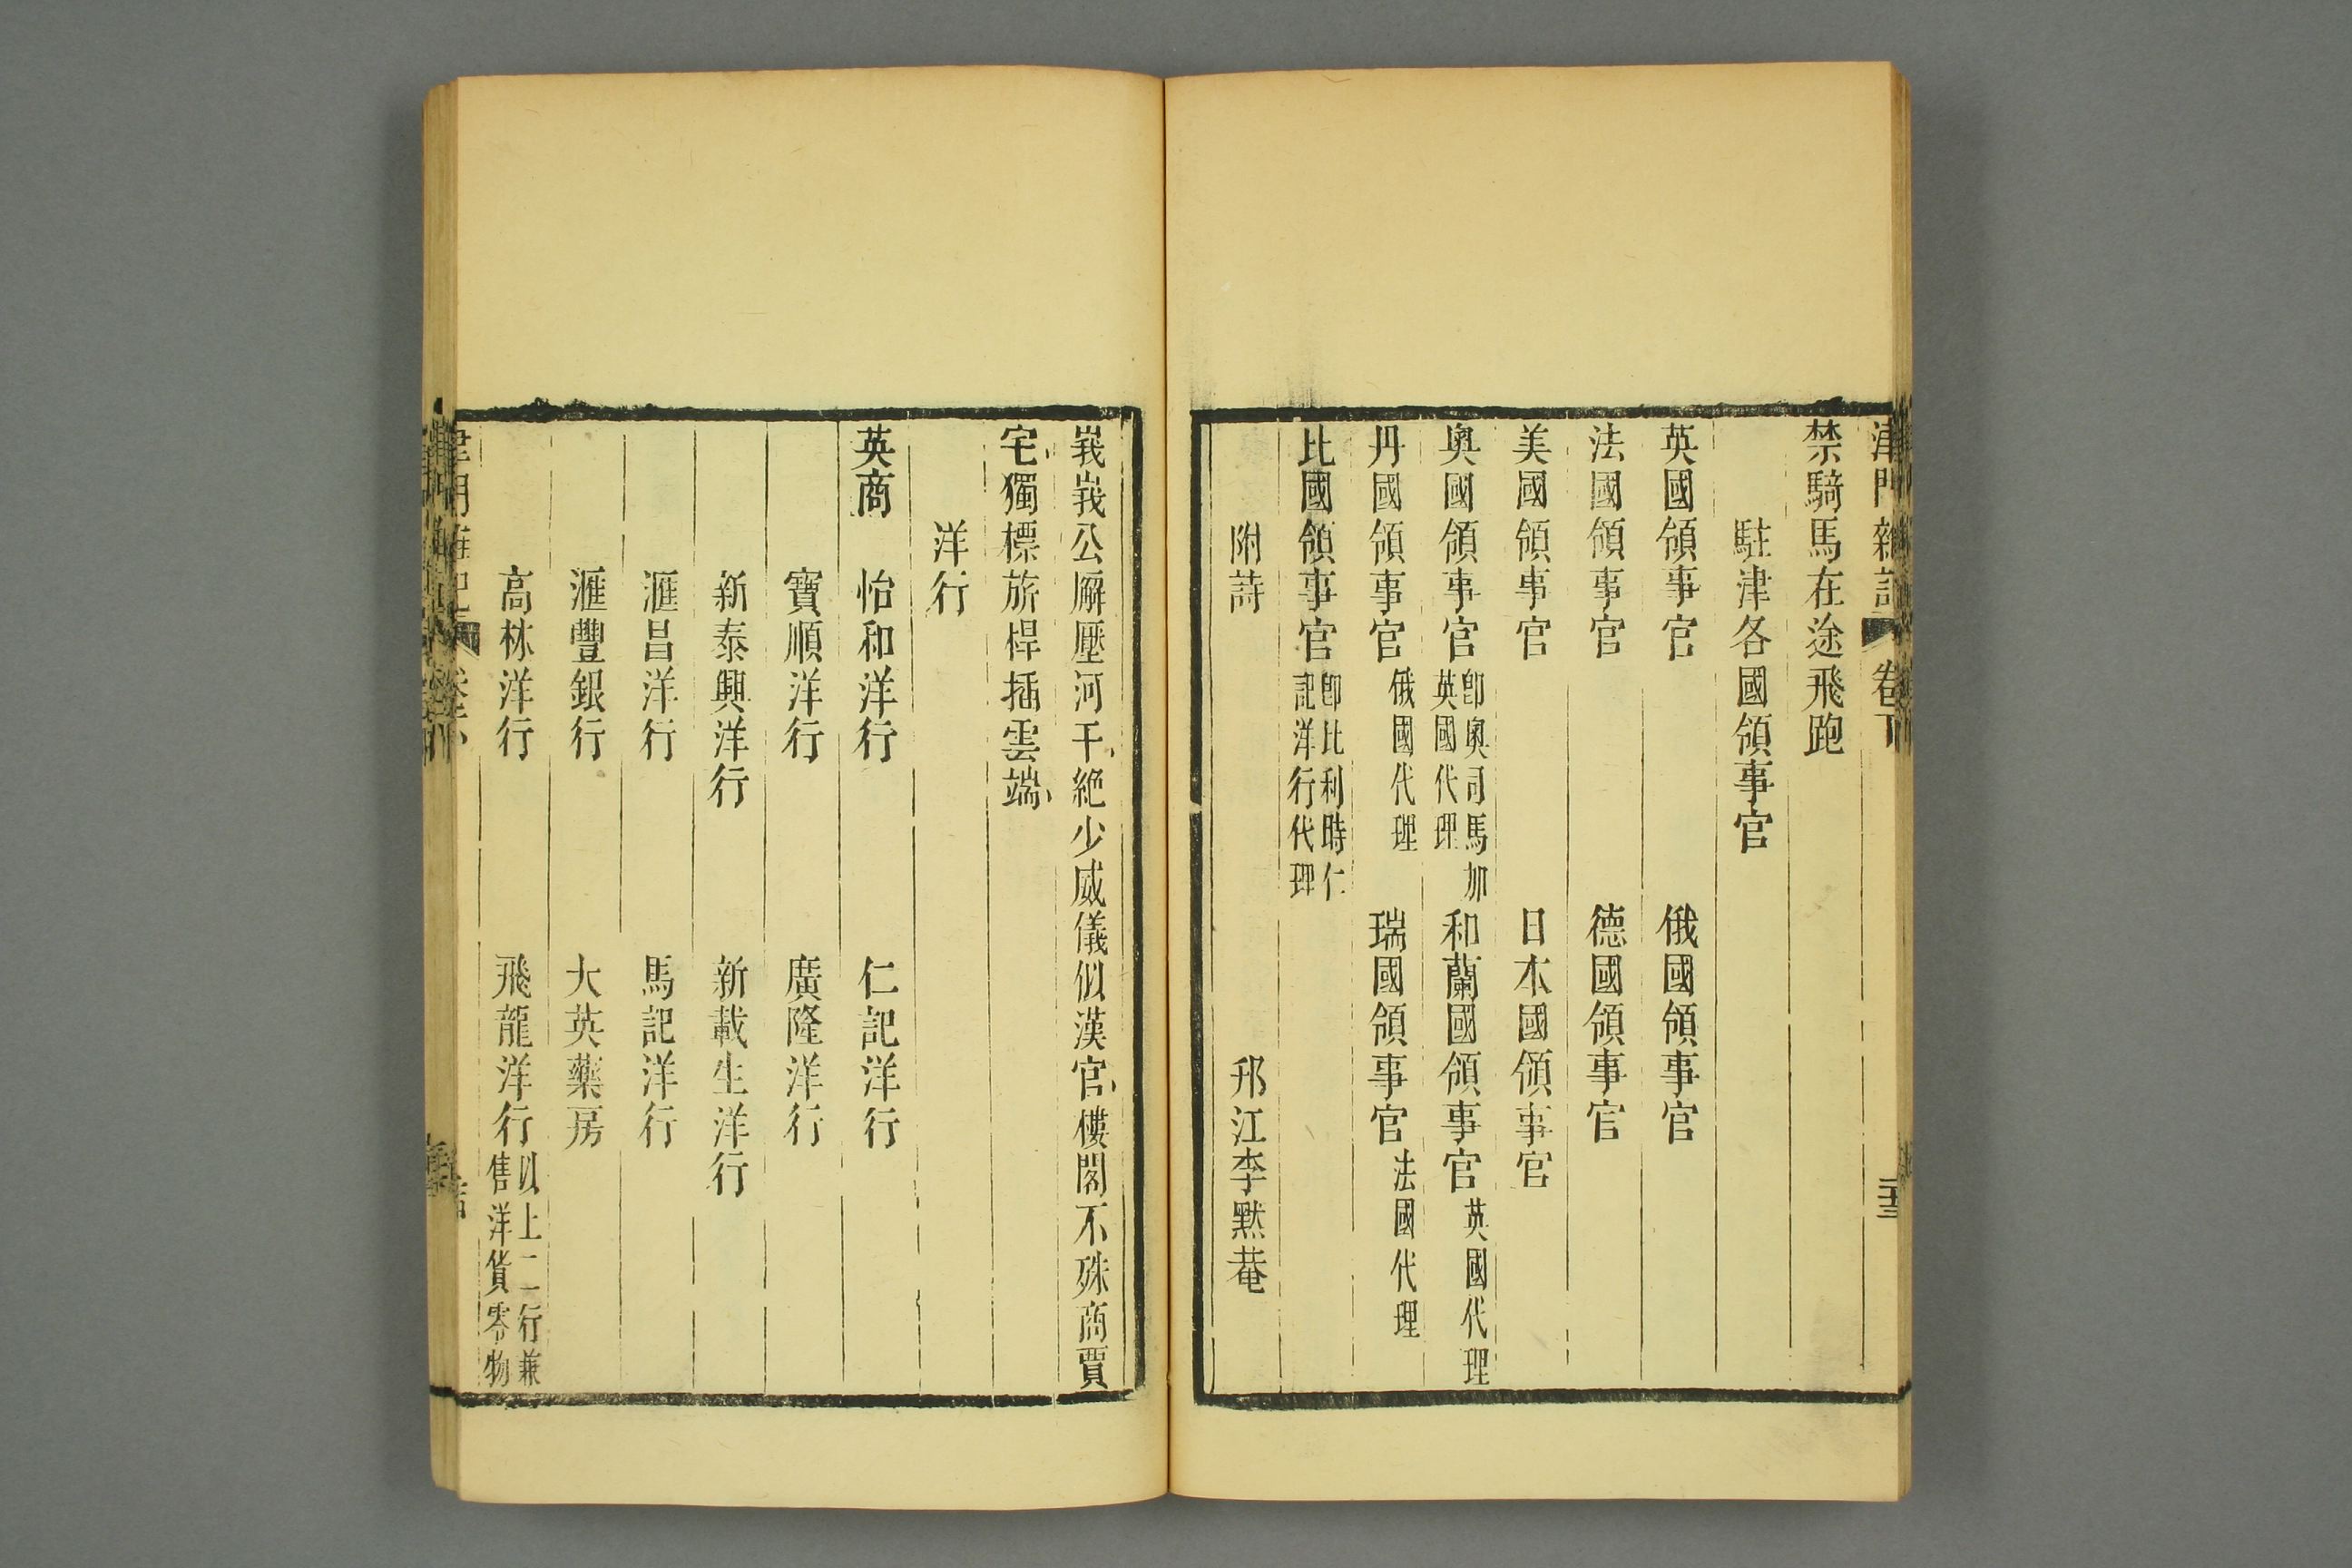 津門雜記 卷下 二十三
禁騎馬在途飛跑
駐津各國領事官
英國領事官 俄國領事官
法國領事官 德國領事官
美國領事官 日本國領事官
奧國領事官 卽奧司馬加英國代理 和蘭國領事官 英國代理
丹國領事官 俄國代理 瑞國領事官 法國代理
比國領事官 卽比利時仁記洋行代理
附詩 邗江李默菴
峩峩公廨壓河干絕少威儀似漢官樓閣不殊商賈
宅獨標旂桿插雲端
洋行
英商 怡和洋行 仁記洋行
寶順洋行 廣隆洋行
新泰興洋行 新載生洋行
滙昌洋行 馬記洋行
滙豐銀行 大英藥房
高林洋行 飛龍洋行 以上二行兼售洋貨零物